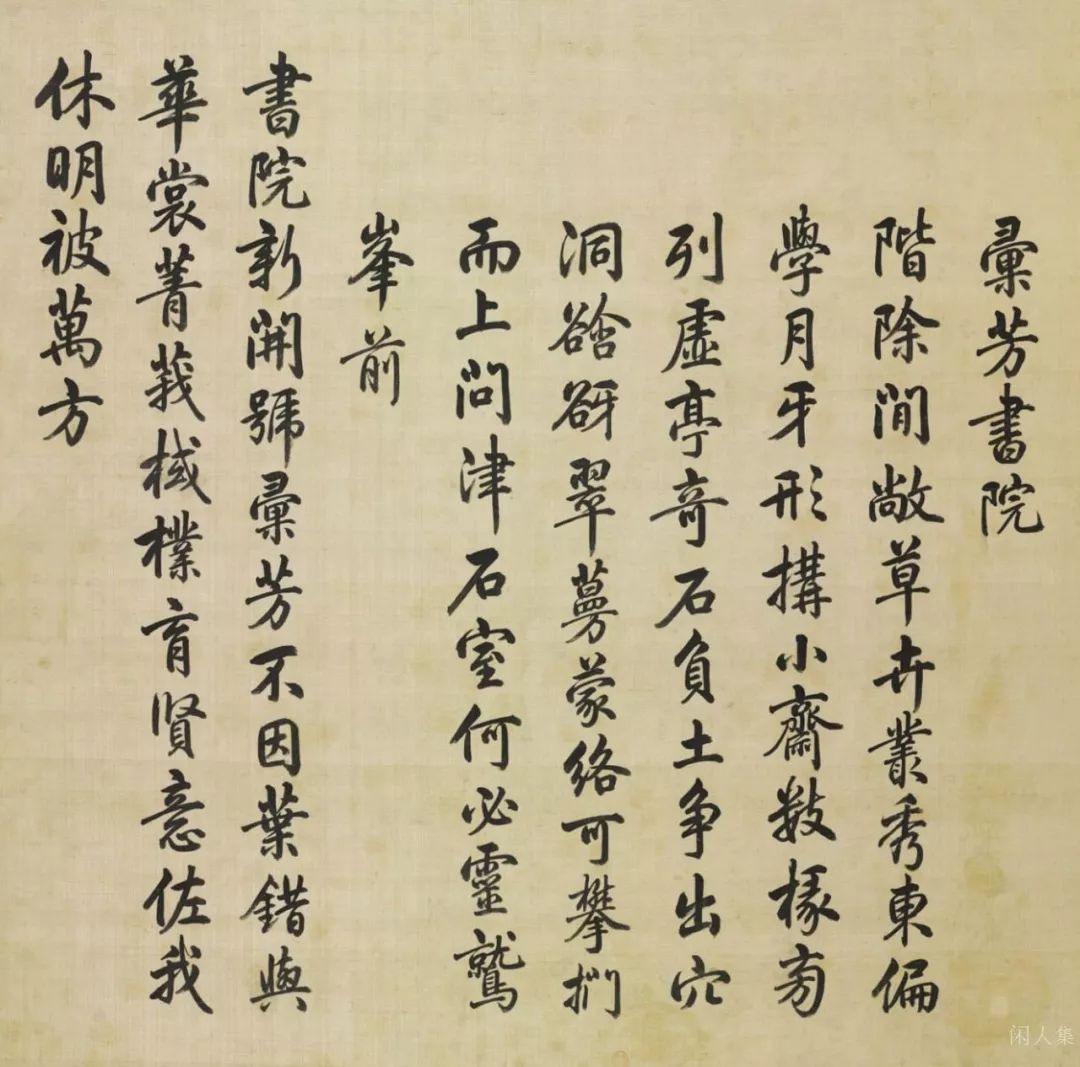 彙芳書院
階除閒敞草卉叢秀東偏
學月牙形構小齋數椽旁
列虛亭奇石負土争出穴
洞谽谺翠蔓蒙絡可攀捫
而上問津石室何必靈鷲
峯前
書院新開號彙芳不因葉錯與
華裳菁莪棫樸育賢意佐我
休明被萬方
闲人集